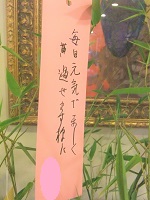 毎日元気で楽しく
過せます様に